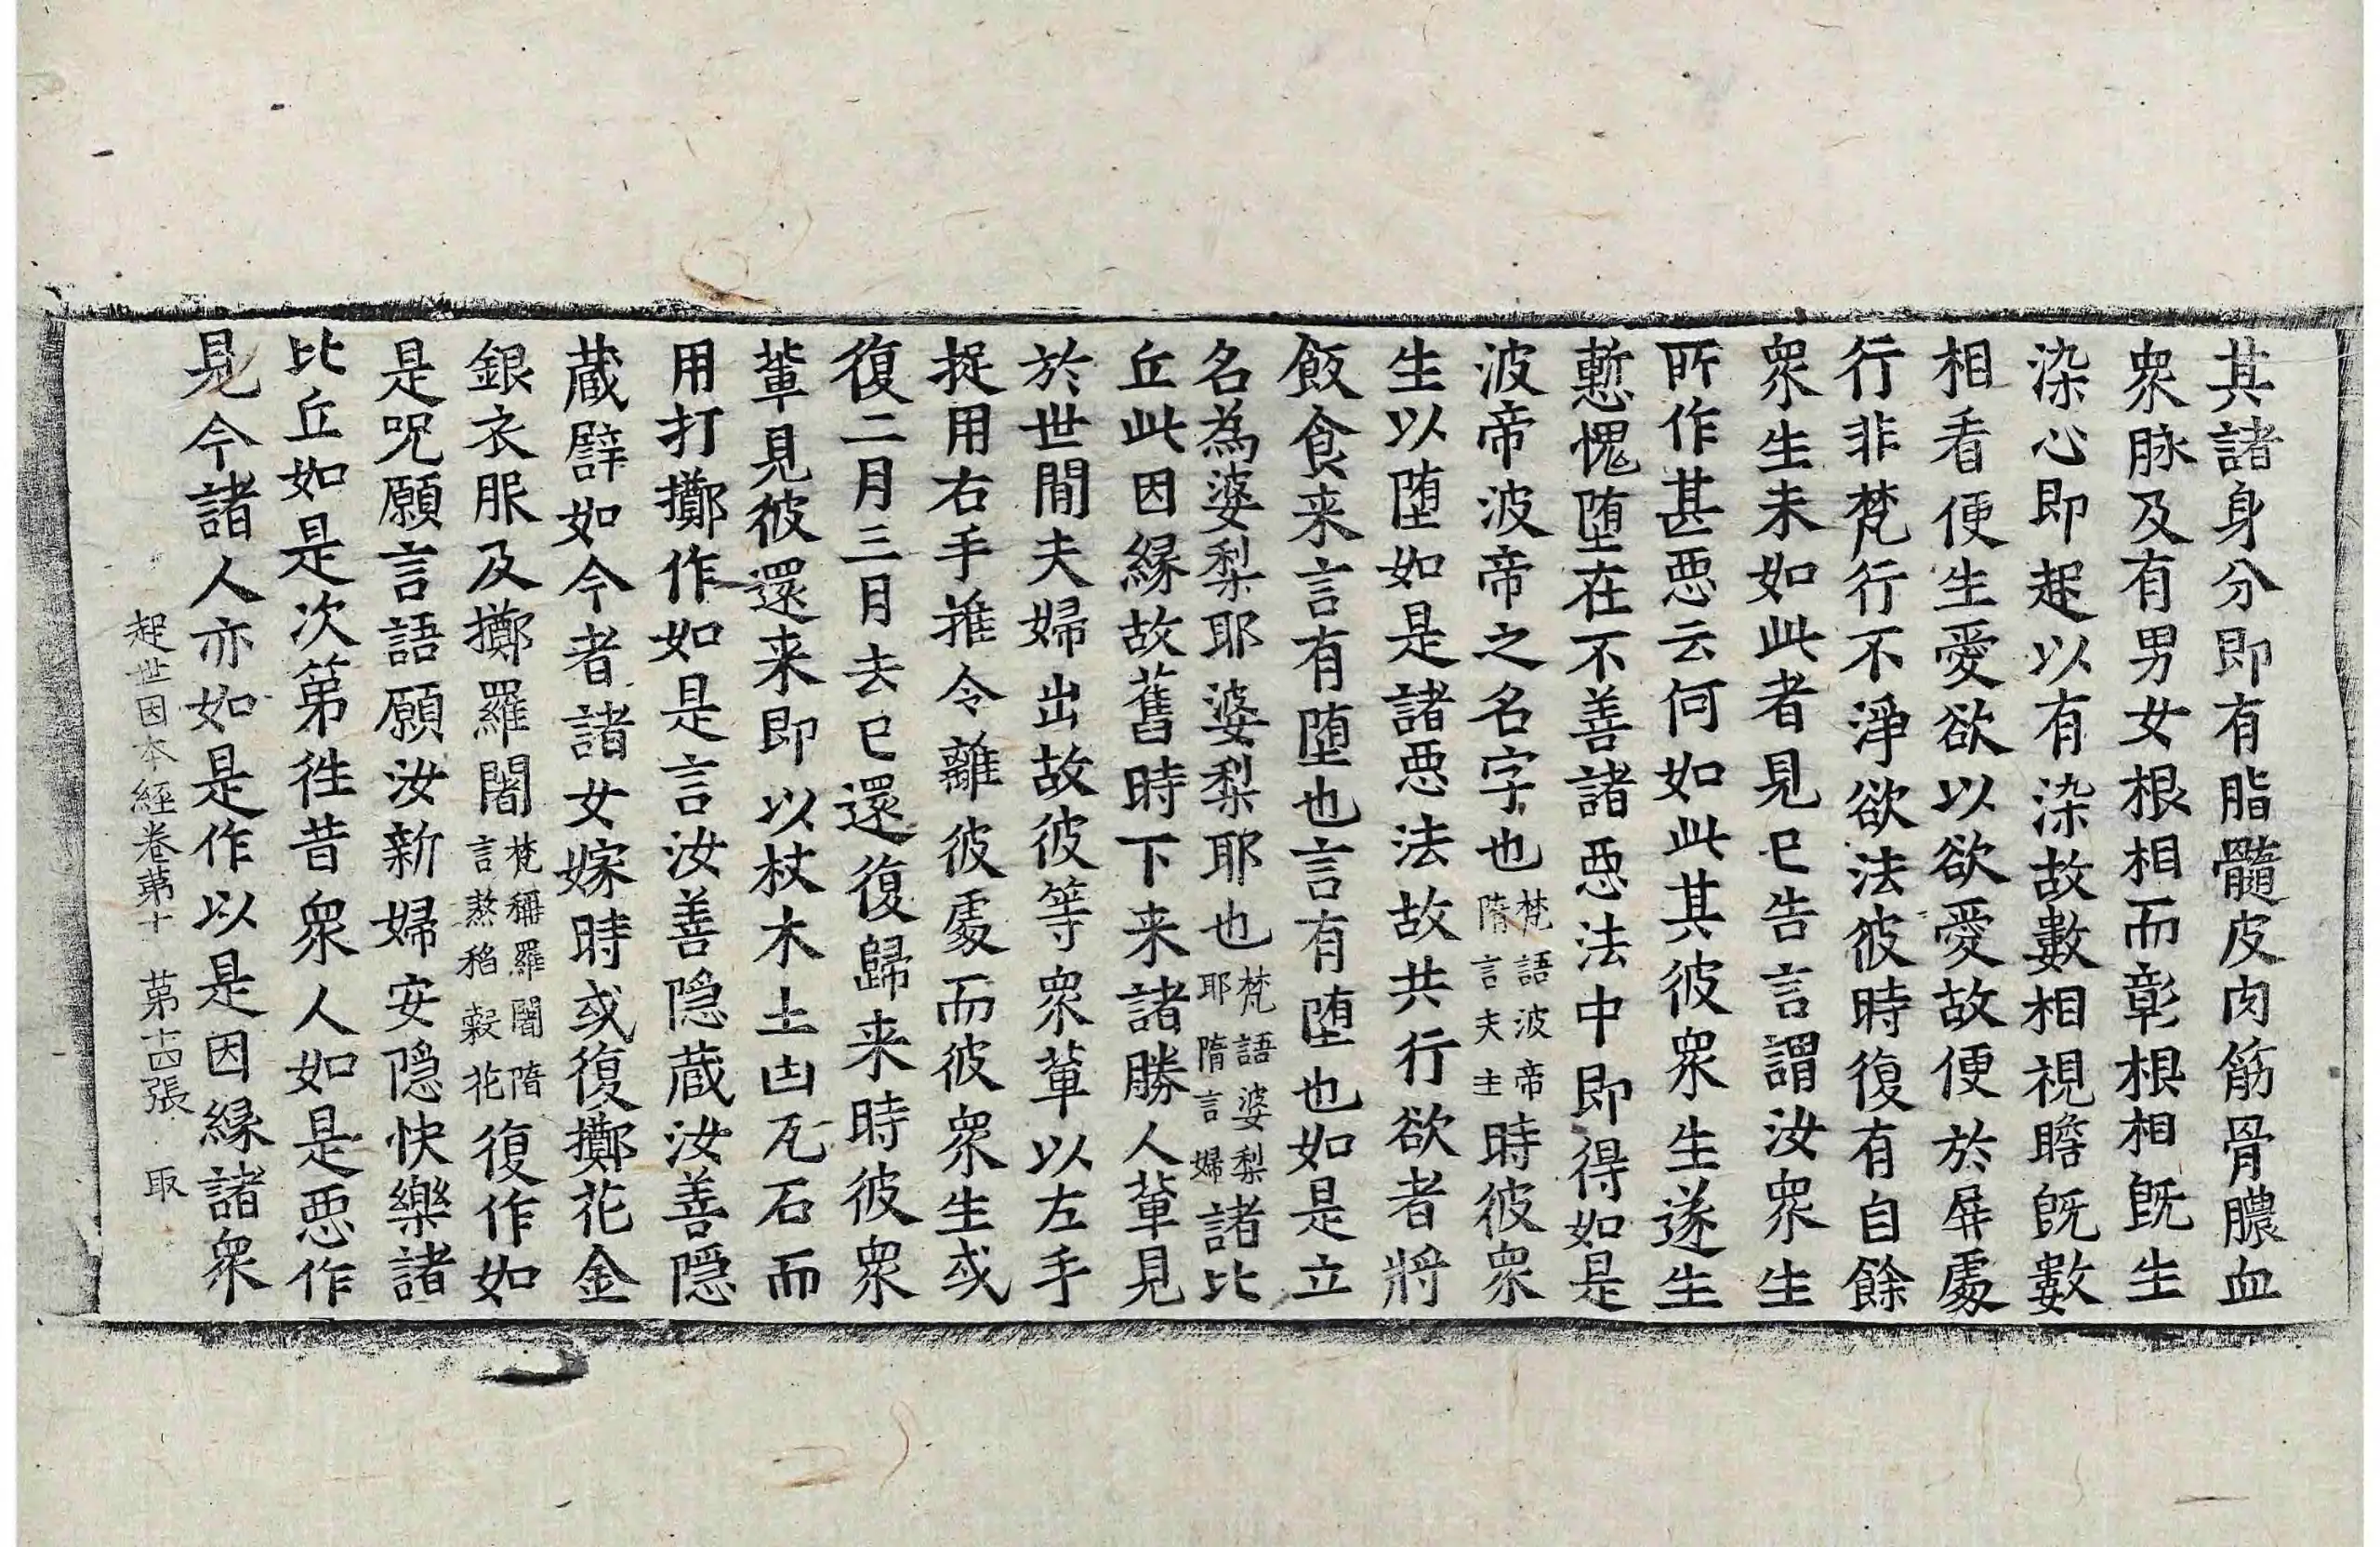 其諸身分即有脂髓皮肉筋骨膿血
衆脉及有男女根相而彰根相既生
染心即起以有染故數相視瞻既數
相看便生愛欲以欲愛故便於屏處
行非梵行不淨欲法彼時復有自餘
衆生未如此者見已告言謂汝衆生
所作甚惡云何如此其彼衆生遂生
慙愧墮在不善諸惡法中即得如是
波帝波帝之名字也梵語波帝隋言夫主時彼衆
生以墮如是諸惡法故共行欲者將
飯食来言有墮也言有墮也如是立
名為婆梨耶婆梨耶也梵語婆梨耶隋言婦諸比
丘此因緣故舊時下来諸勝人輩見
於世間夫婦出故彼等衆輩以左手
捉用右手推令離彼處而彼衆生或
復二月三月去已還復歸来時彼衆
輩見彼還来即以杖木土凷瓦石而
用打擲作如是言汝善隠蔵汝善隠
蔵譬如今者諸女嫁時或復擲花金
銀衣服及擲羅闍梵稱羅闍隋言熬稻穀花復作如
是呪願言語願汝新婦安隠快樂諸
比丘如是次第徃昔衆人如是惡作
見今諸人亦如是作以是因緣諸衆
起世因本經卷第十 第十四張 取